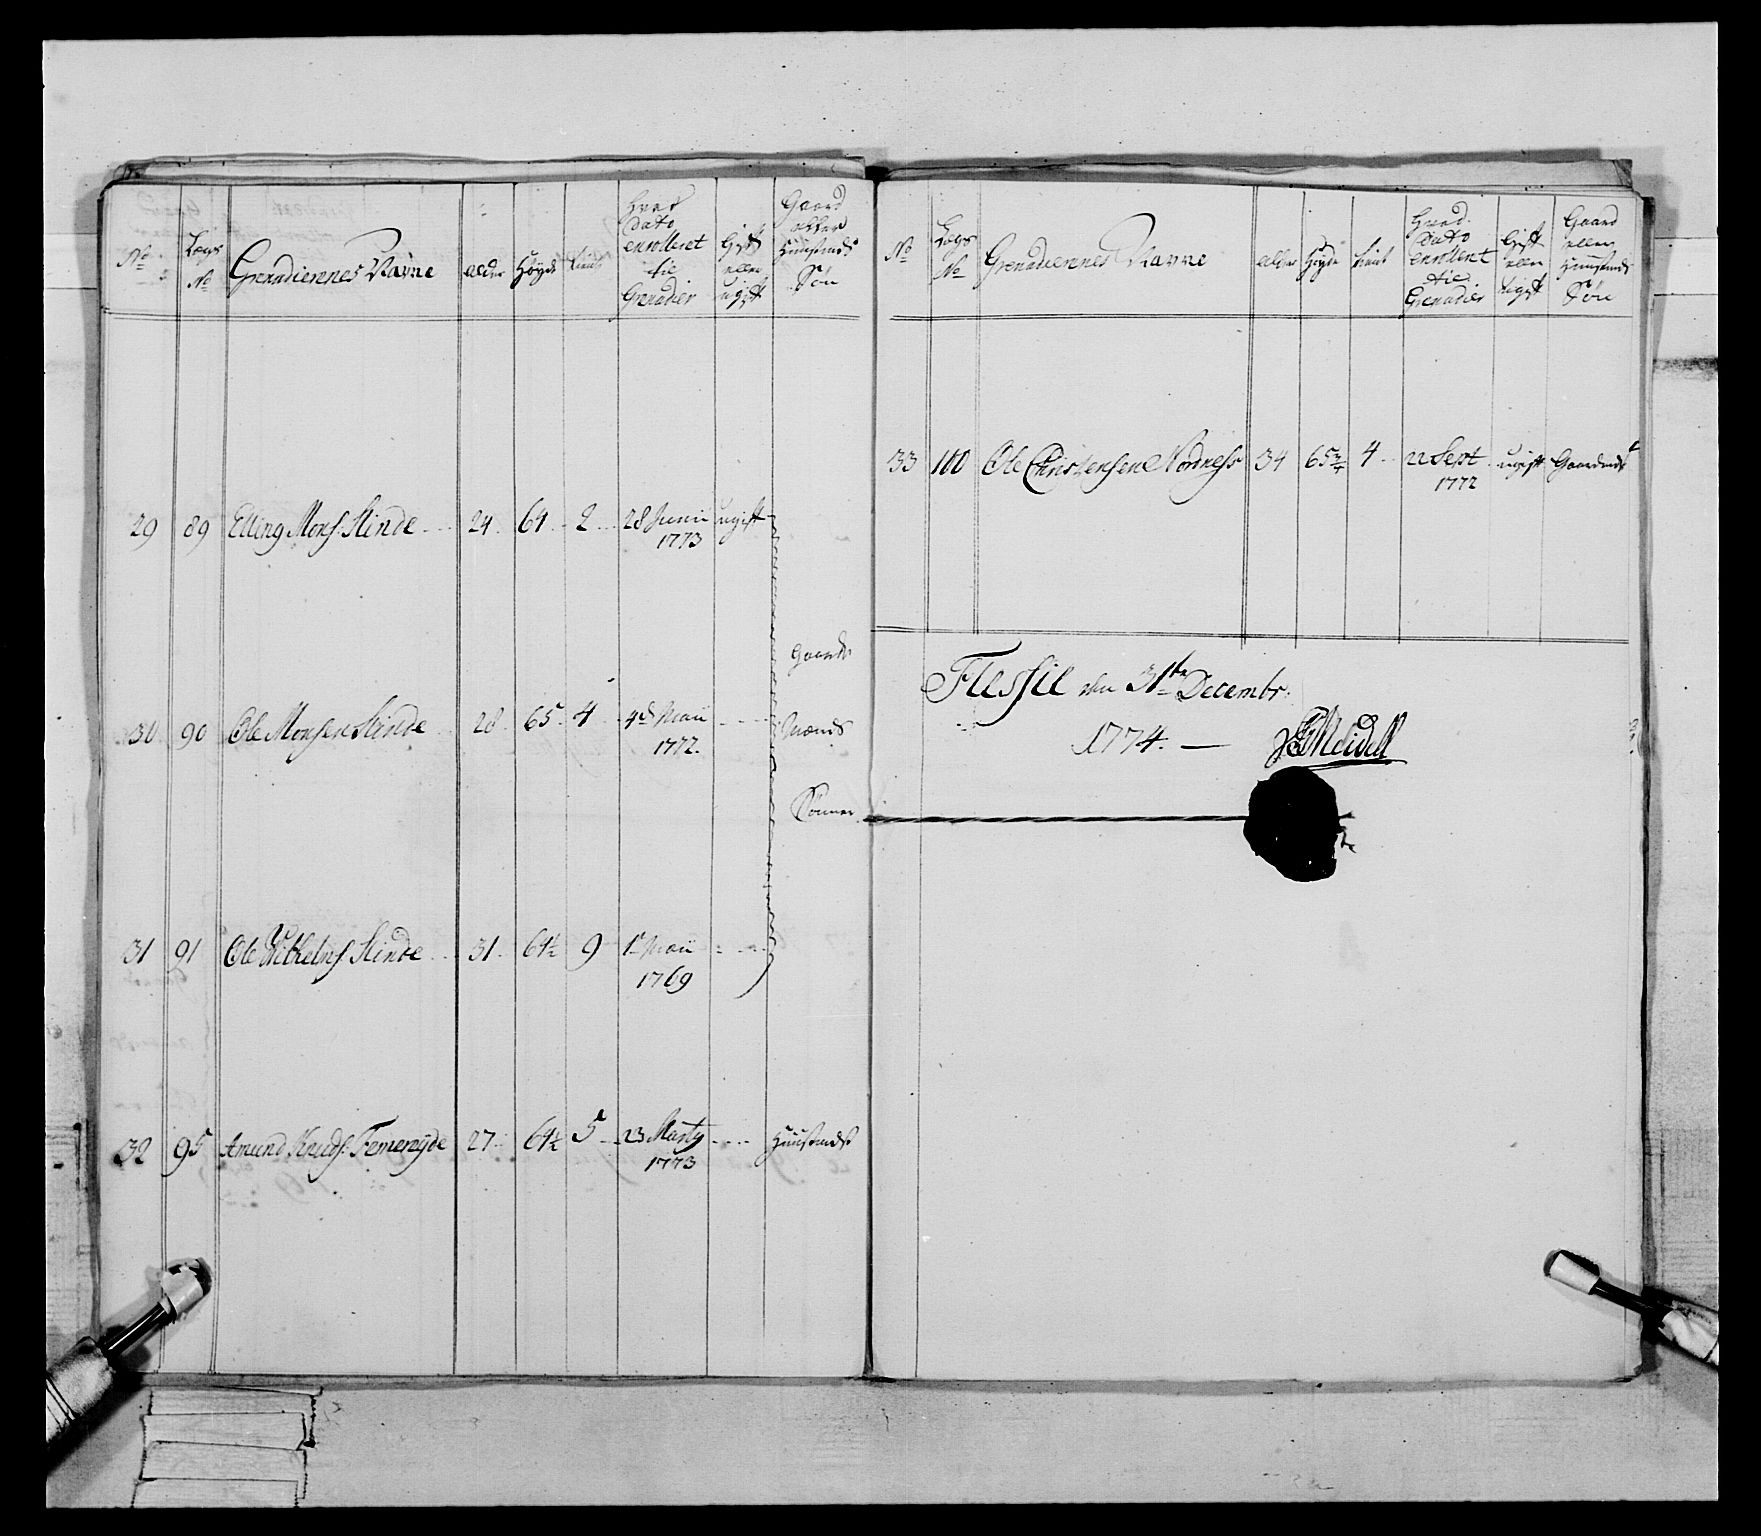 No
Lægs No
Grenadierernes Navne
alder
Høyde
tient
Hvad Dato enrolleret til Grenadier
Gift eller ugift
Gaard eller Huusmands Søn
29 89 Elling Mons. Slinde 24 64 2 28 Junii 1773 ugift
30 90 Ole Monsen Slinde 28 65 4 4de Maii 1772
31 91 Ole Wilhelms. Slinde 31 64½ 9 1 Maii 1769
Gaards
Mænds
Sønner
32 95 Amund Knuds. Femereyde 27 64½ 5 23 Marty 1773 Huusmands
No
Lægs No
Grenadierernes Navne
alder
Høyde
tient
Hvad Dato enrolleret til Grenadier
Gift eller ugift
Gaard eller Huusmands Søn
33 100 Ole Christensen Nordness 34 65¾ 4 22 Sept 1772 ugift Gaardmds
Flessie den 31te Decembr:
1774. — Meidell